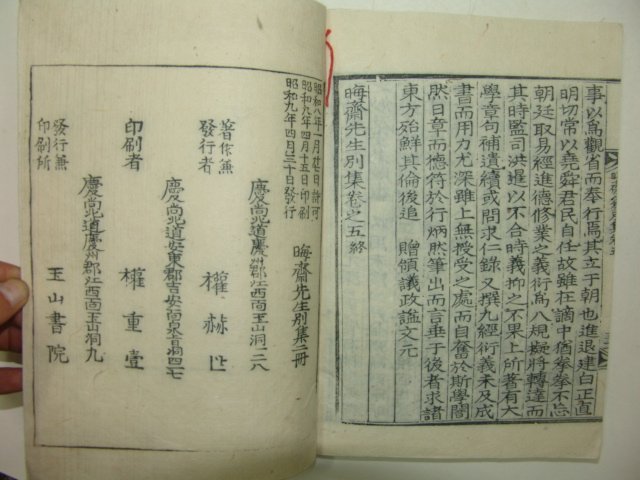 事以爲觀省而奉行焉其立于朝也進退建白正直
明切常以堯舜君民自任故雖在謫中猶拳拳不忘
朝廷取易經進德修業之義衍爲八規擬將轉達而
其時監司洪暹以不合時義抑之不果上所著有大
學章句補遺續或問求仁錄又撰九經衍義未及成
書而用力尤深雖上無授受之處而自奮於斯學闇
然日章而德符於行炳然筆出而言垂于後者求諸
東方殆鮮其倫後追　贈領議政謚文元
晦齋先生別集卷之五終
晦齋先生別集二冊
昭和九年一月廿日許可
昭和九年四月十五日印刷
昭和九年四月三十日發行
慶尙北道慶州郡江西面玉山洞一二八
著作兼發行者　權赫
慶尙北道安東郡吉安面泉旨洞四七
印刷者　權重壹
慶尙北道慶州郡江西面玉山洞九
發行兼印刷所　玉山書院